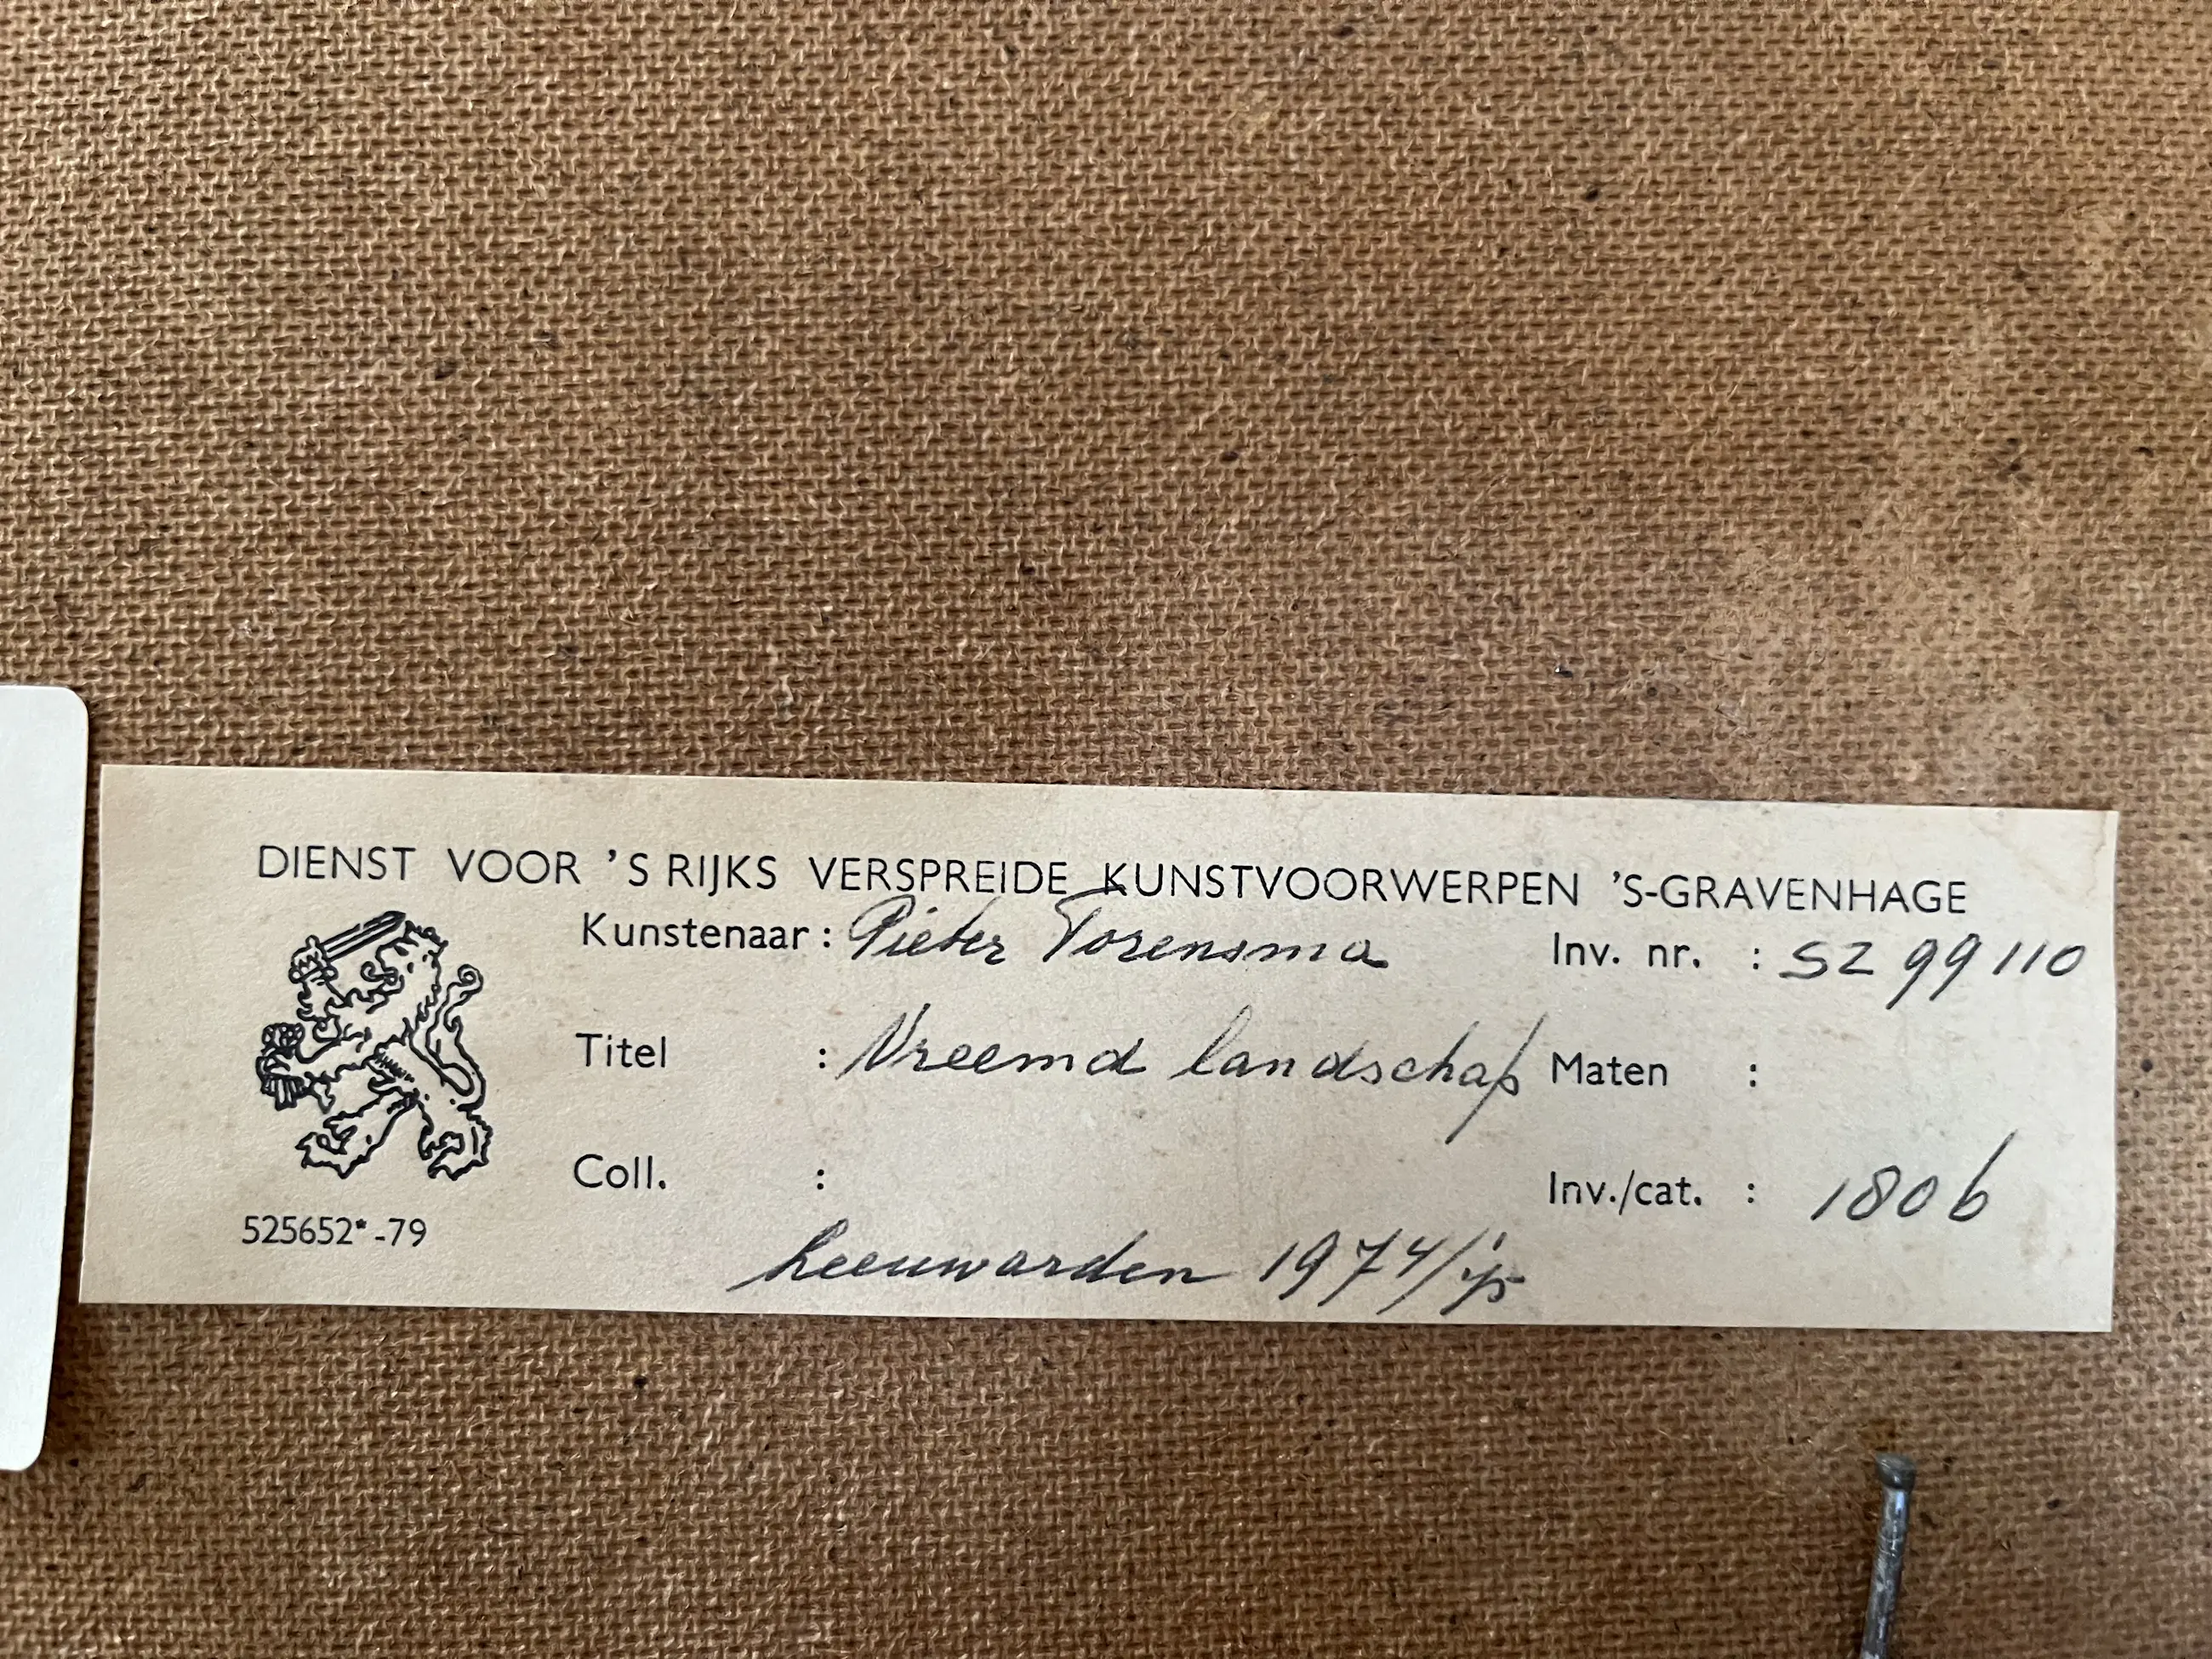 DIENST VOOR 'S RIJKS VERSPREIDE KUNSTVOORWERPEN 'S-GRAVENHAGE
Kunstenaar : Pieter Torensma Inv. nr. : SZ 99110
Titel : Vreemd landschap Maten :
Coll. : Inv./cat. : 1806
525652*-79
Leeuwarden 1974/